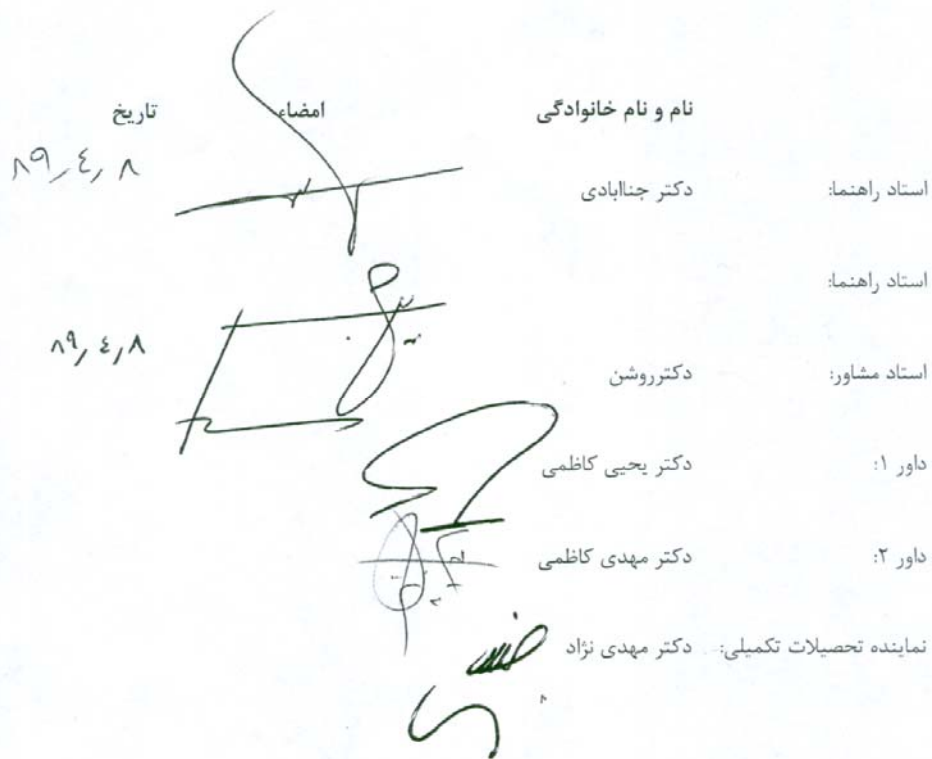 نام و نام خانوادگی امضاء تاریخ
استاد راهنما: دکتر جنابادی ۸۹/۴/۸
استاد راهنما:
استاد مشاور: دکترروشن ۸۹/۴/۸
داور ۱: دکتر یحیی کاظمی
داور ۲: دکتر مهدی کاظمی
نماینده تحصیلات تکمیلی: دکتر مهدی نژاد